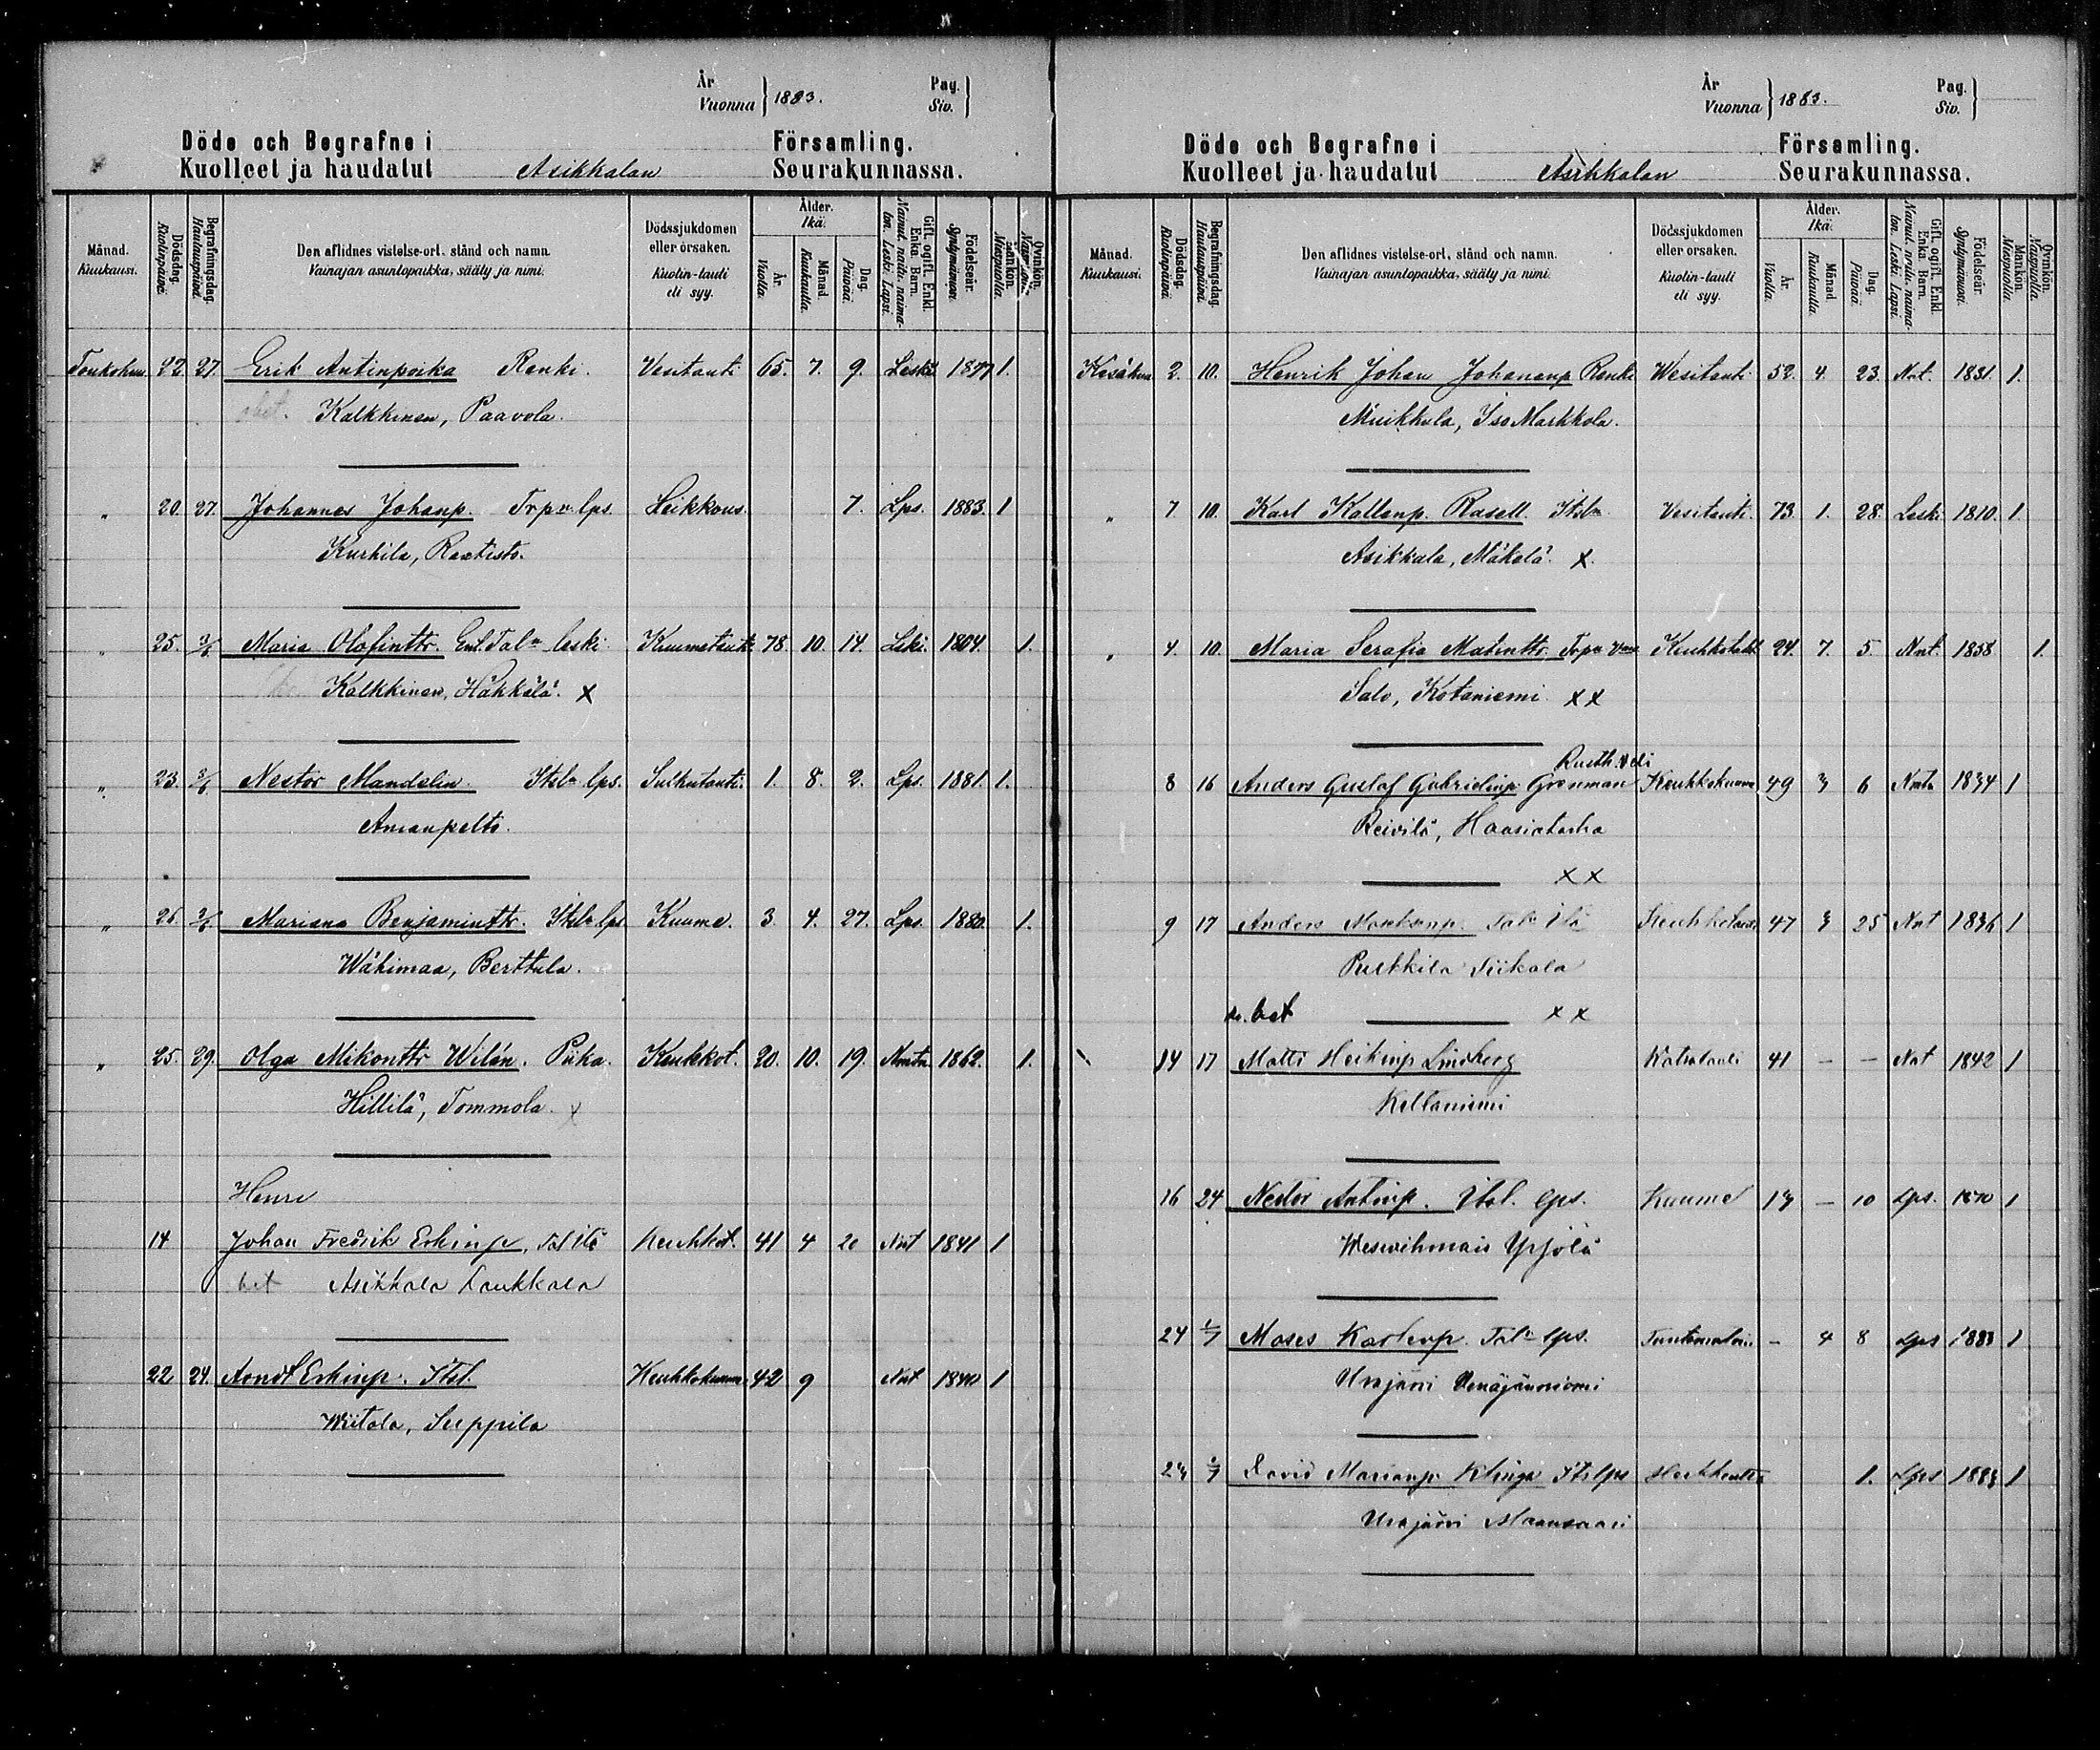 År
Vuonna } 1883.
Pag.
Siv. }
Döde och Begrafne i Församling.
Kuolleet ja haudatut Asikkalan Seurakunnassa.
Månad. Kuukausi.
Dödsdag. Kuolinpäivä.
Begrafningsdag. Hautauspäivä.
Den aflidnes vistelse-ort, stånd och namn.
Vainajan asuntopaikka, sääty ja nimi.
Dödssjukdomen eller orsaken.
Kuolin-tauti eli syy.
Ålder. Ikä.
År. Vuotta.
Månad. Kuukautta.
Dag. Päivää.
Gift, ogift. Enkl. Enka. Barn.
Nainut, naimaton. Leski. Lapsi.
Födelseår. Syntymävuosi.
Mankön. Miespuolia.
Qvinkön. Naispuolia.
Toukokuu. 22. 27. Erik Antinpoika Renki. Vesitauti 65. 7. 9. Leski 1817 1.
Kalkkinen, Paavola.
" 20. 27. Johannes Johanp. Torp:n lps. Heikkous. 7. Lps. 1883. 1
Kurhila, Raatisto.
" 25. 3/6 Maria Olofintr. Ent. Tal:n leski Kuumetauti 78. 10. 14. Leski. 1804. 1.
Kalkkinen, Häkkälä. x
" 23. 3/6 Nestor Mandelin. Itsl:n lps. Sulkutauti. 1. 8. 2. Lps. 1881. 1.
Anianpelto.
" 26. 3/6 Mariana Benjamintr. Itsl:n lps. Kuume. 3. 4. 27. Lps. 1880. 1.
Wähimaa, Berttula.
" 25. 29. Olga Mikontr Wilén. Piika. Keuhkot. 20. 10. 19. Nmtn. 1862. 1.
Hillilä, Tommola. x
Henri
14 Johan Fredrik Erkinp. Tal Itä Keuhkot. 41 4 20 Nnt 1841 1
bet Asikkala Laukkala
22 24. Erkinp. Itsl. Keuhkokuume. 42 9 Nnt 1840 1
Wiitala, Seppilä
År
Vuonna } 1883.
Pag.
Siv. }
Döde och Begrafne i Församling.
Kuolleet ja haudatut Asikkalan Seurakunnassa.
Månad. Kuukausi.
Dödsdag. Kuolinpäivä.
Begrafningsdag. Hautauspäivä.
Den aflidnes vistelse-ort, stånd och namn.
Vainajan asuntopaikka, sääty ja nimi.
Dödssjukdomen eller orsaken.
Kuolin-tauti eli syy.
Ålder. Ikä.
År. Vuotta.
Månad. Kuukautta.
Dag. Päivää.
Gift, ogift. Enkl. Enka. Barn.
Nainut, naimaton. Leski. Lapsi.
Födelseår. Syntymävuosi.
Mankön. Miespuolia.
Qvinkön. Naispuolia.
Kesäkuu 2. 10. Henrik Johan Johananp Renki Wesitauti 52. 4. 23. Nnt. 1831. 1.
Muikkula, Iso Markkola.
" 7 10. Karl Kallenp. Rasell. Itsl:n Vesitauti. 73. 1. 28. Leski 1810. 1.
Asikkala, Mäkelä. x.
" 4. 10. Maria Serafia Matintr. Torp:n Keuhkotaut. 24. 7. 5 Nnt. 1858 1.
Salo, Kotaniemi x x
Rusth. Veli
8 16 Anders Gustaf Gabrielinp Grenman Keuhkokuume 49 3 6 Nmtn 1834 1
Reivilä, Haasiataka
x x
9 17 Anders Tal:n Itä Keuhkotauti 47 3 25 Nnt 1836 1
Purkkila Tiikala
bet x x
14 17 Matti Heikinp Lindberg 41 - - Nnt 1842 1
Kellaniemi
16 24 Nestor Antinp. Itsl. lps. Kuume 13 - 10 Lps. 1870 1
Wesivehmais Ypjölä
24 1/7 Moses Karlenp. Tal:n lps. Tuntematoin - 4 8 Lps 1883 1
Urajärvi Wenäjänniemi
24 1/7 David Marianp. Klinga Itslps 1. Lps 1883 1
Urajärvi Maansaari